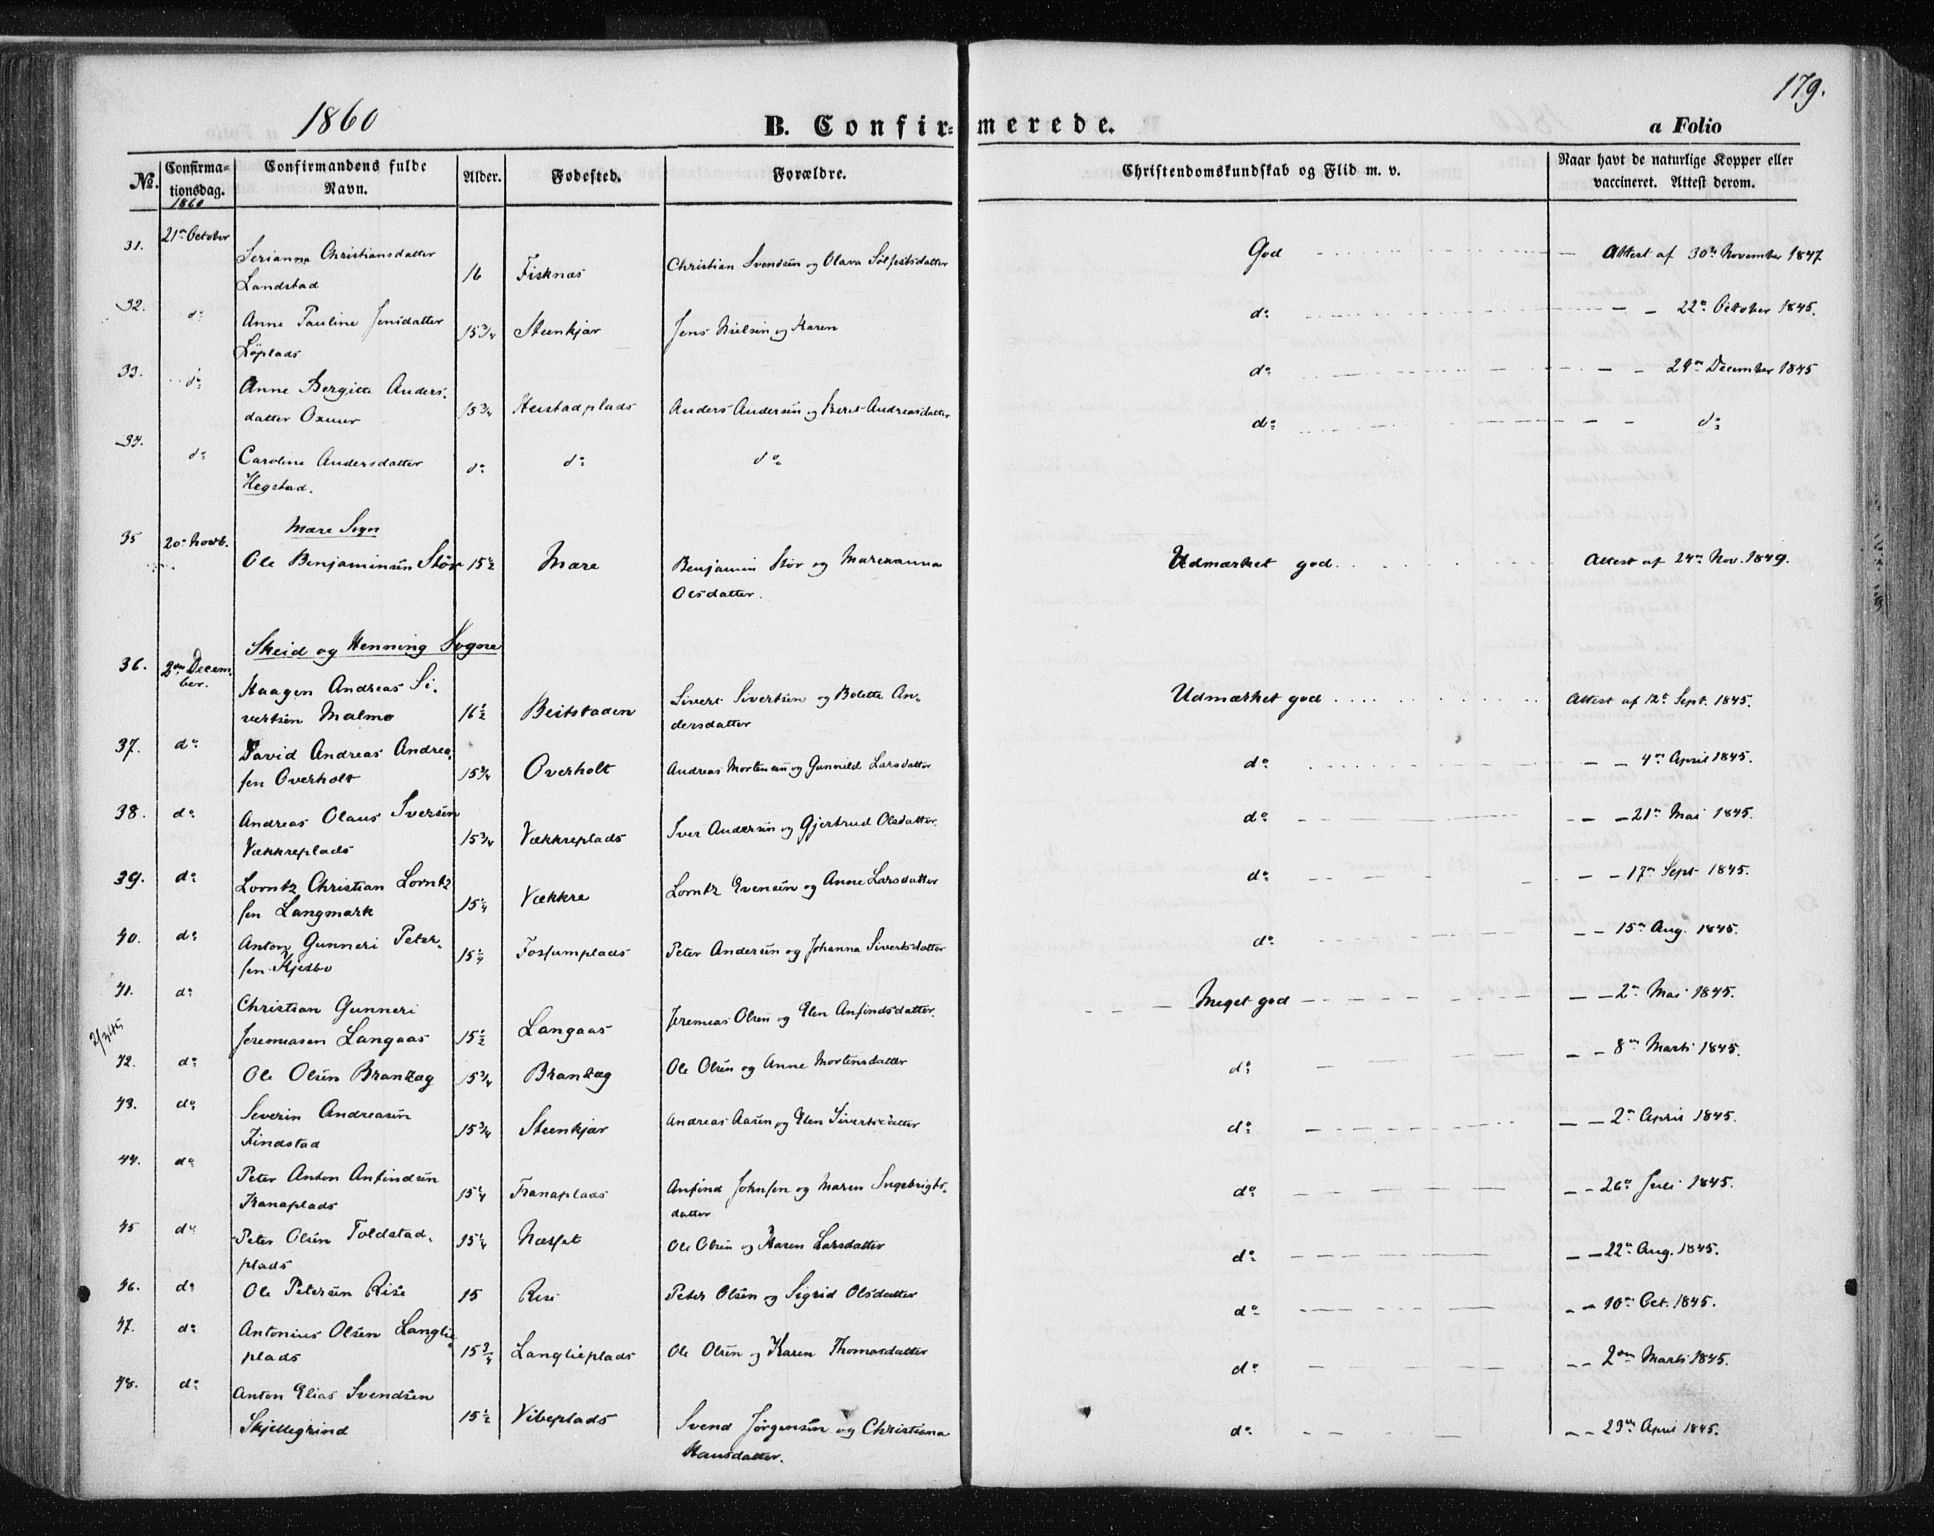 1860
179.
B. Confirmerede.
a Folio
No.
Confirmationsdag.
Confirmandens fulde Navn.
Alder.
Fødested.
Forældre.
Christendomskundskab og Flid m. v.
Naar havt de naturlige Kopper eller vaccineret. Attest derom.
1860
31. 21de October Serianna Christiansdatter Landstad 16 Fisknæs Christian Svendsen og Olava Sølfestsdatter God Attest af 30te November 1847
32. do Anne Pauline Jensdatter Løplads 15 3/4 Steenkjær Jens Nielsen og Karen do 22de October 1845.
33. do Anne Bergitte Andersdatter Oxmur 15 3/4 Heistadplads Anders Andersen og Berit Andreasdatter do 29de December 1845
34. do Caroline Andersdatter Hegstad. do do do do do
Mære Sogn
35 20de Novb. Ole Benjaminsen Stør 15 1/2 Mære Benjamin Stør og Marexanna Olsdatter. Udmærket god. Attest af 24de Nov. 1849.
Skeid og Henning Sogne
36. 2den December. Haagen Andreas Sivertsen Malmo 16 1/2 Beitstaden Sivert Sivertsen og Bolette Andersdatter Udmærket god Attest af 12te Sept. 1845.
37. do David Andreas Andreasen Overholt 15 3/4 Overholt Andreas Mortensen og Gunnild Larsdatter do 4de April 1845.
38. do Andreas Olaus Iversen Vækkreplads 15 3/4 Vækkreplads Iver Andersen og Gjertrud Olsdatter. do 21de Mai 1845.
39. do Lorntz Christian Lorntzsen Langmark 15 1/4 Vækkre Lorntz Evensen og Anne Larsdatter do 17de Sept 1845.
40. do Anton Gunneri Petersen Kjesbo 15 1/4 Fossumplads Peter Andersen og Johanna Sivertsdatter do 15de Aug. 1845.
41. do Christian Gunneri Jeremiasen Langaas 15 1/2 Langaas Jeremias Olsen og Elen Anfindsdatter. Meget god 2de Mai 1845.
42. do Ole Olsen Brandzæg 15 3/4 Brandzæg Ole Olsen og Anne Mortensdatter do 8de Marts 1845.
43. do Severin Andreasen Findstad 15 3/4 Steenkjær Andreas Aasen og Elen Sivertsdatter do 2de April 1845.
44. do Peter Anton Anfindsen Tranaplads 15 1/4 Tranaplads Anfind Johnsen og Maren Ingebrigtsdatter do 26de Juli 1845.
45 do Peter Olsen Toldstadplads 15 1/4 Næsset Ole Olsen og Karen Larsdatter do 22de Aug. 1845.
46. do Ole Petersen Rise 15 Rise Peter Olsen og Sigrid Olsdatter do 10de Oct. 1845.
47. do Antonius Olsen Langlieplads 15 3/4 Langlieplads Ole Olsen og Karen Thomasdatter do 2den Marts 1845.
48. do Anton Elias Svendsen Skjellegrind 15 1/2 Vibeplads Svend Jørgensen og Christiana Hansdatter. do 23de April 1845.